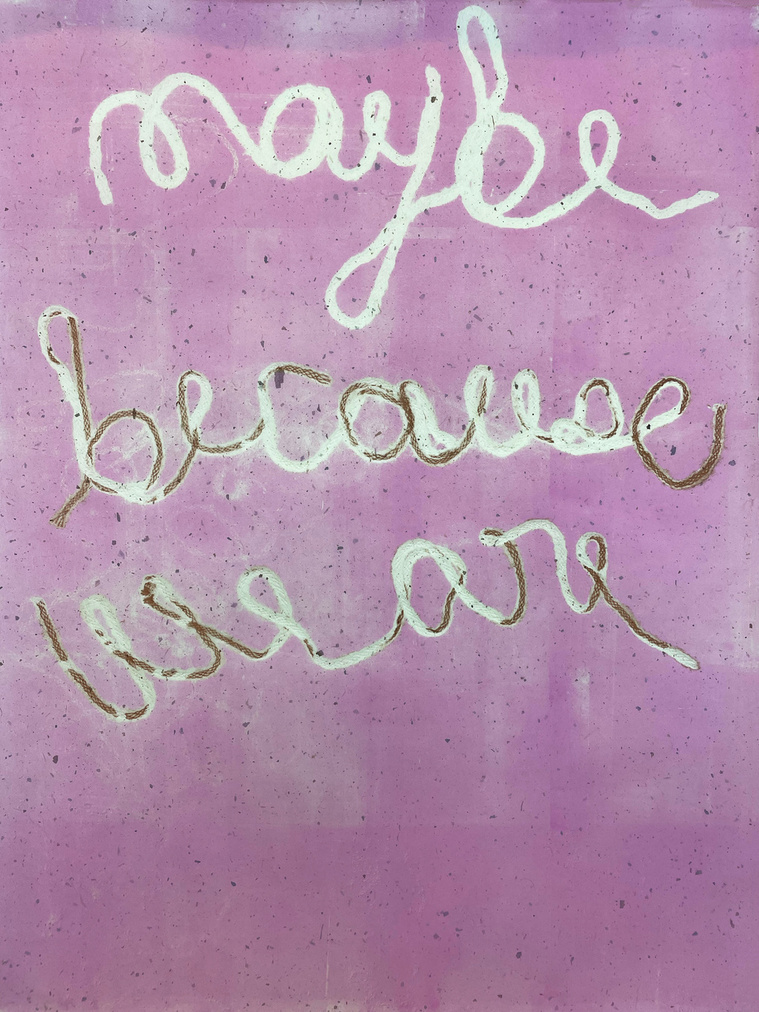 maybe
because
we are